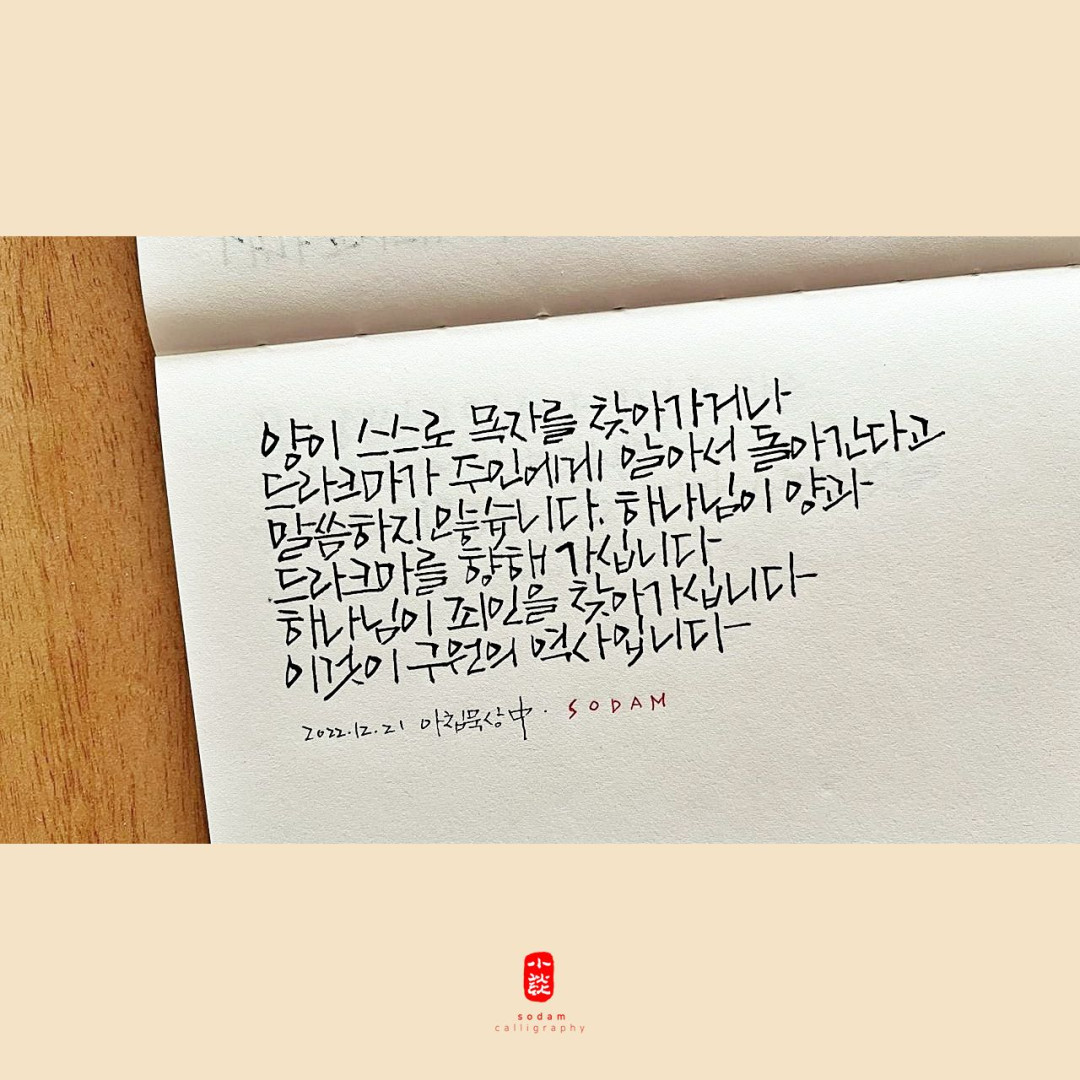 양이 스스로 목자를 찾아가거나
드라크마가 주인에게 알아서 돌아간다고
말씀하지 않습니다. 하나님이 양과
드라크마를 향해 가십니다
하나님이 죄인을 찾아가십니다
이것이 구원의 역사입니다
2022.12.21 아침묵상中. SODAM
小談
sodam
calligraphy